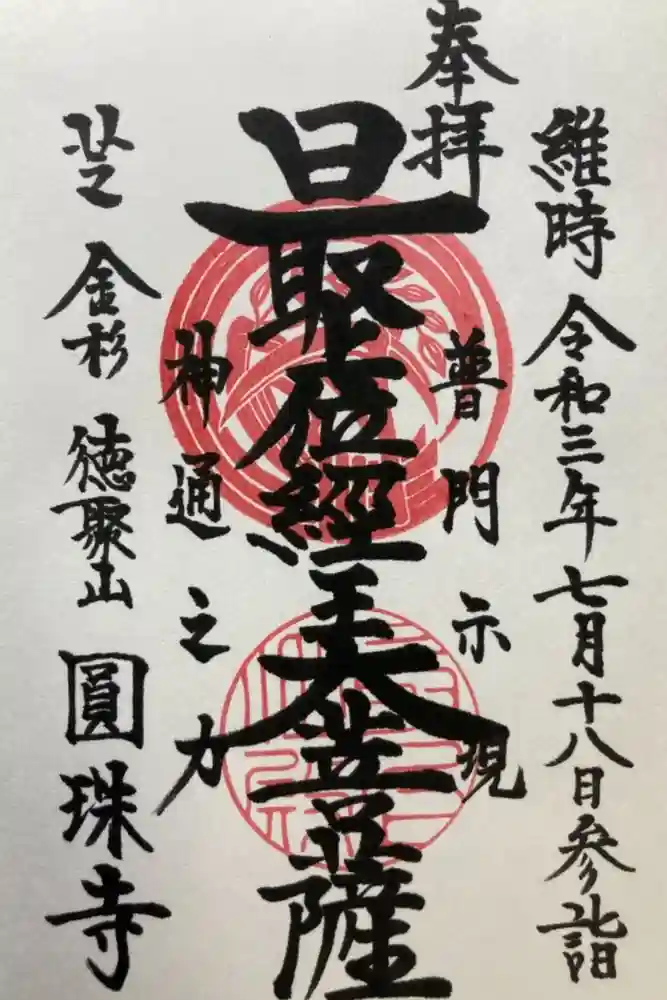 奉拝
維時 令和三年七月十八日参詣
普門示現
最位經王大菩薩
神通之力
金杉 徳聚山 圓珠寺